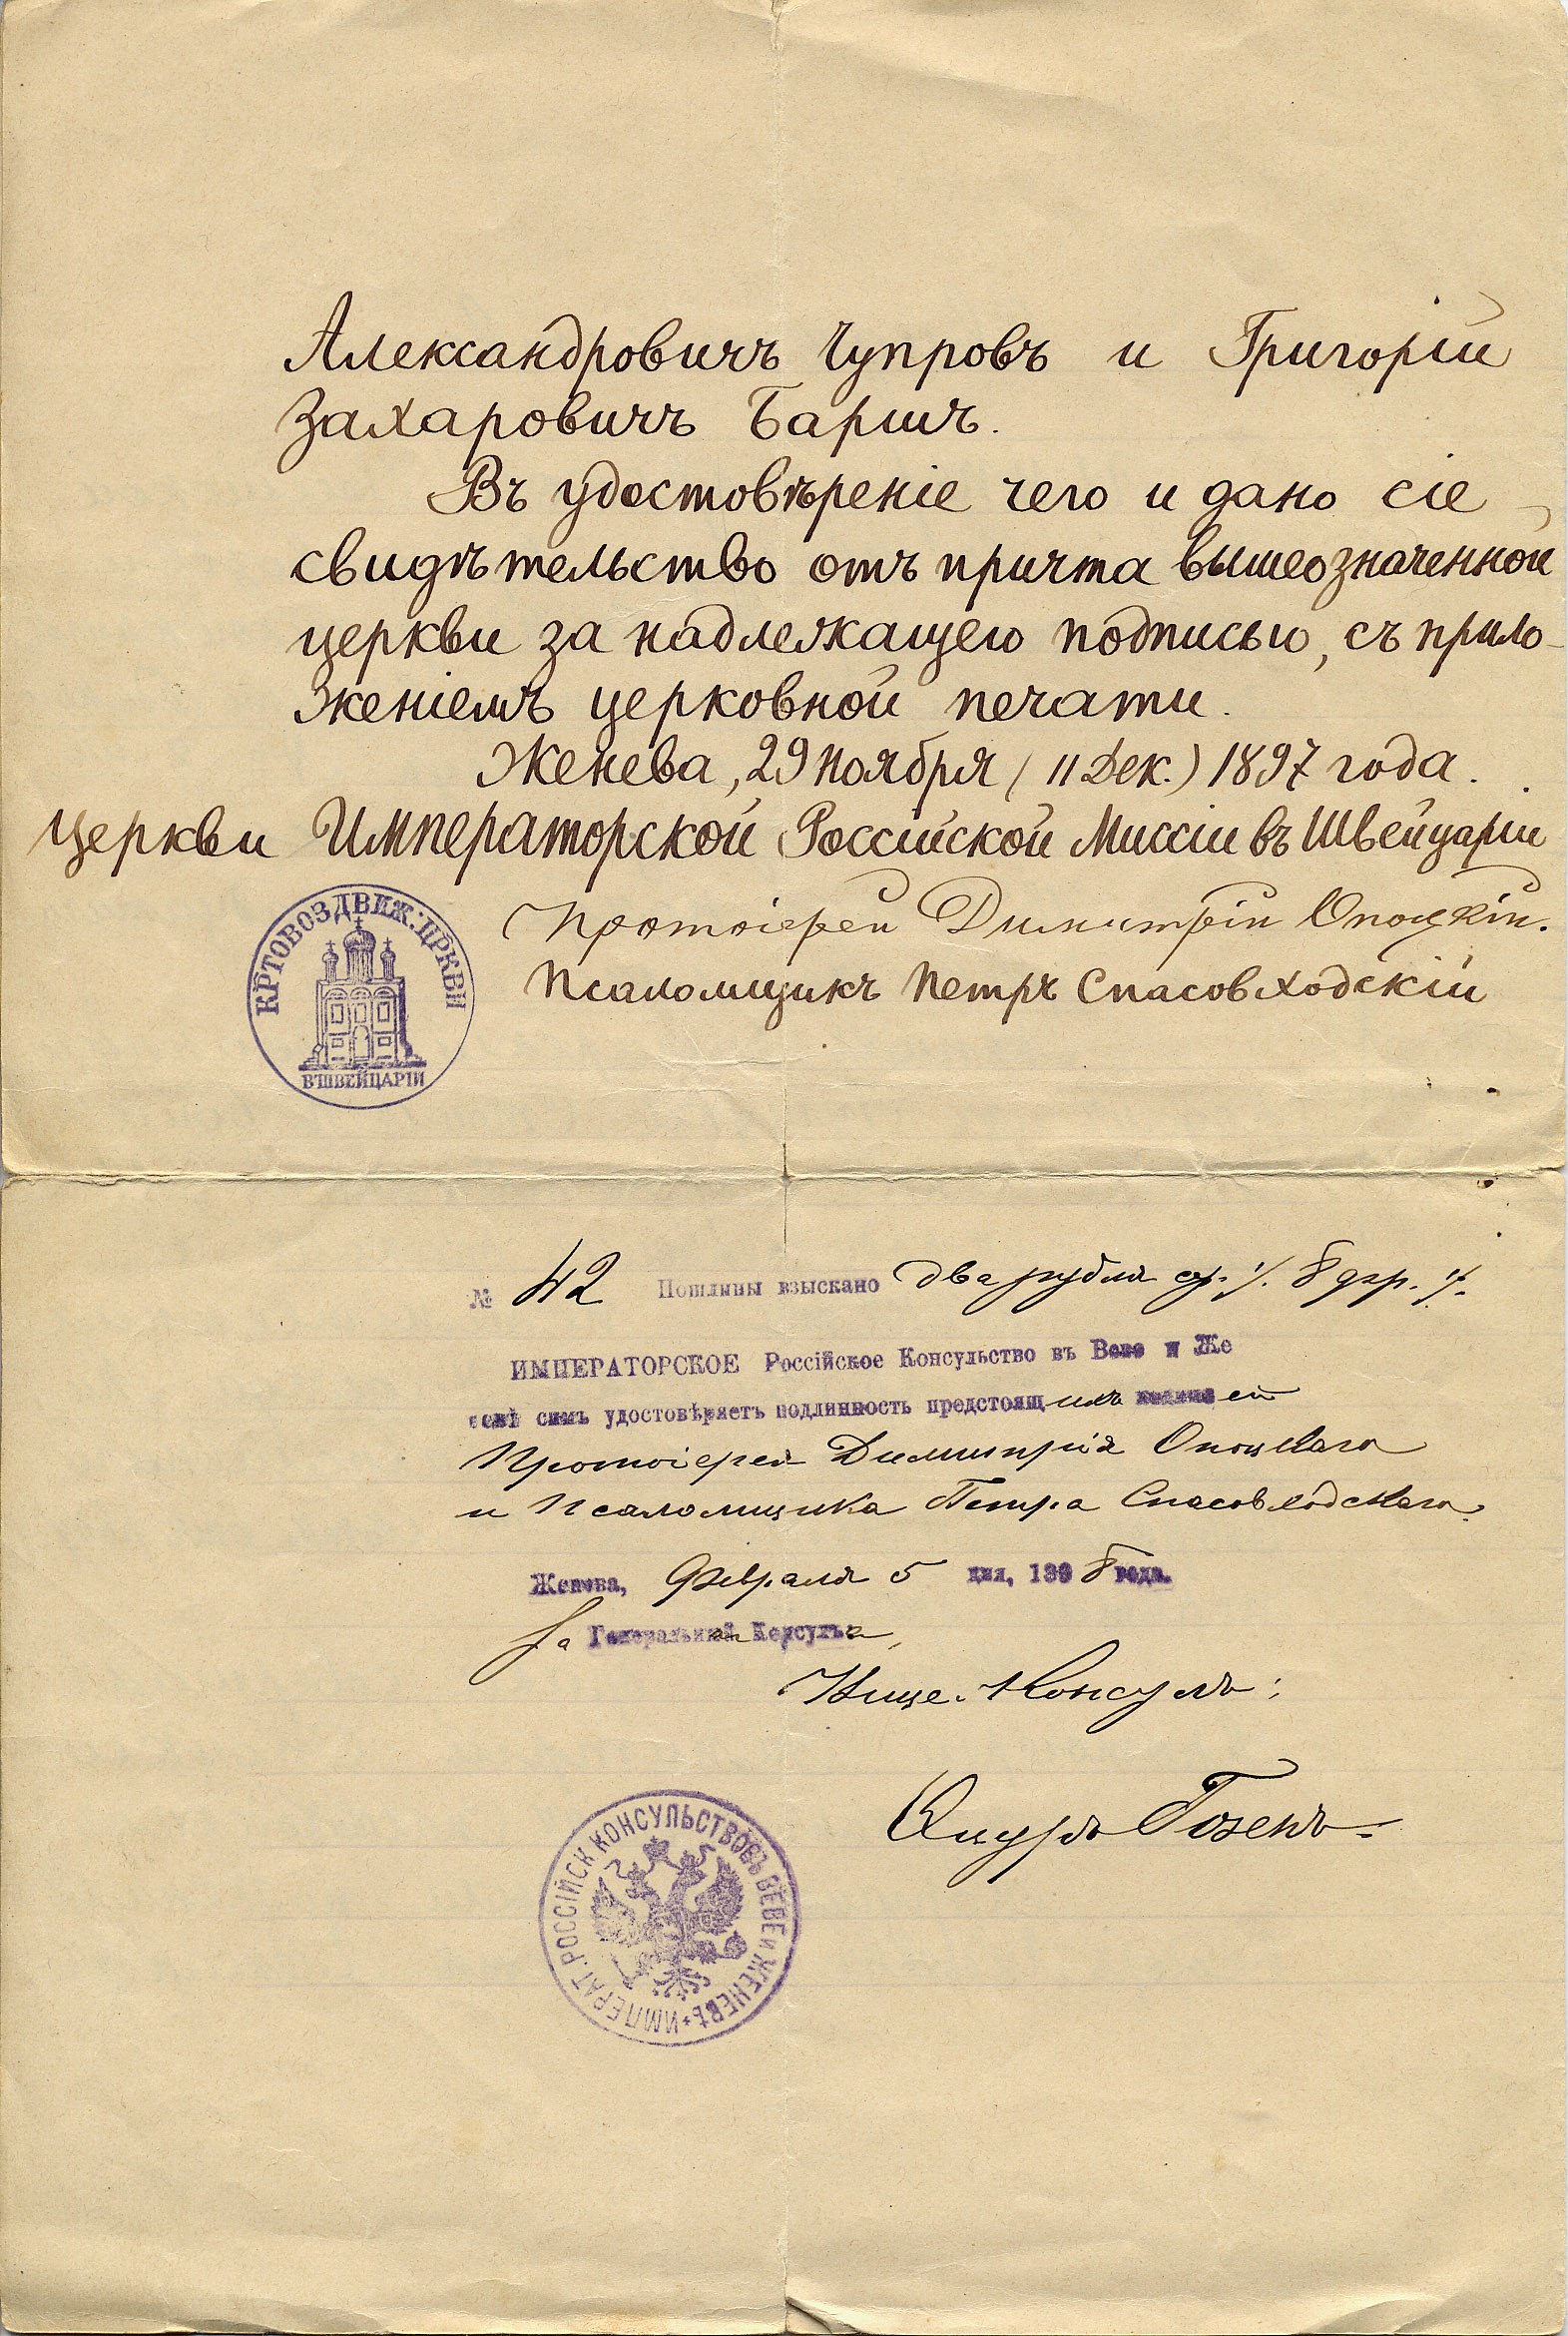 Александровичъ Чупровъ и Григорій
Захаровичъ Баричъ.
Въ удостовѣреніе чего и дано сіе
свидѣтельство отъ причта вышеозначенной
церкви за надлежащею подписью, съ прило-
женіемъ церковной печати.
Женева, 29 Ноября (11 Дек.) 1897 года.
Церкви Императорской Россійской Миссіи въ Швейцаріи
Протоіерей Димитрій Опоцкій.
Псаломщикъ Петръ Спасовходскій
КРТОВОЗДВИЖ: ЦРКВИ
ВЪ ШВЕЙЦАРІИ
№ 42 Пошлины взыскано два рубля 8 фр.
ИМПЕРАТОРСКОЕ Россійское Консульство въ Веве и Же
невѣ симъ удостовѣряетъ подлинность предстоящихъ
Протоіерея Димитрія Опоцкаго
и Псаломщика Петра Спасовходскаго.
Женева, Февраля 5 дня, 1898 года.
За Генеральнаго Консула,
Вице-Консулъ:
ИМПЕРАТ. РОССІЙСК КОНСУЛЬСТВО ВЪ ВЕВЕ и ЖЕНЕВѢ